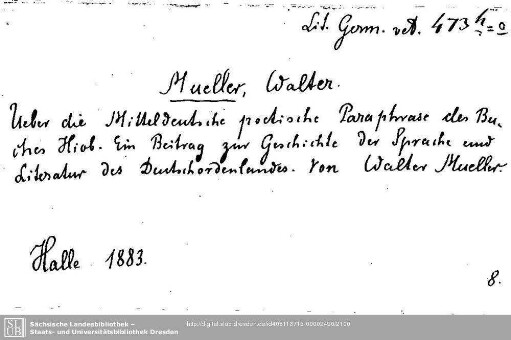 Lit. Germ. vet. 473
Mueller, Walter.
Ueber die Mitteldeutsche poetische Paraphrase des Bu-
ches Hiob. Ein Beitrag zur Geschichte der Sprache und
Literatur des Deutschordenlandes. Von Walter Mueller.
Halle 1883.
8.
SLUB
Sächsische Landesbibliothek –
Staats- und Universitätsbibliothek Dresden